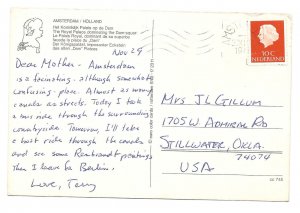 AMSTERDAM / HOLLAND
Het Koninklijk Paleis op de Dam
The Royal Palace dominating the Dam square
Le Palais Royal, dominant de sa superbe
façade la place du „Dam"
Der Königspalast, imposanter Eckstein
des alten „Dam" Platzes
Nov 29
Dear Mother - Amsterdam
is a fascinating - although somewhat
confusing - place. Almost as many
canals as streets. Today I took
a bus ride through the surrounding
countryside. Tomorrow I'll take
a boat ride through the canals
and see some Rembrandt paintings
Then I leave for Berlin.
Love, Tom
NEDERLAND
Mrs J L Gillum
1705 W Admiral Rd
Stillwater, Okla.
74074
USA